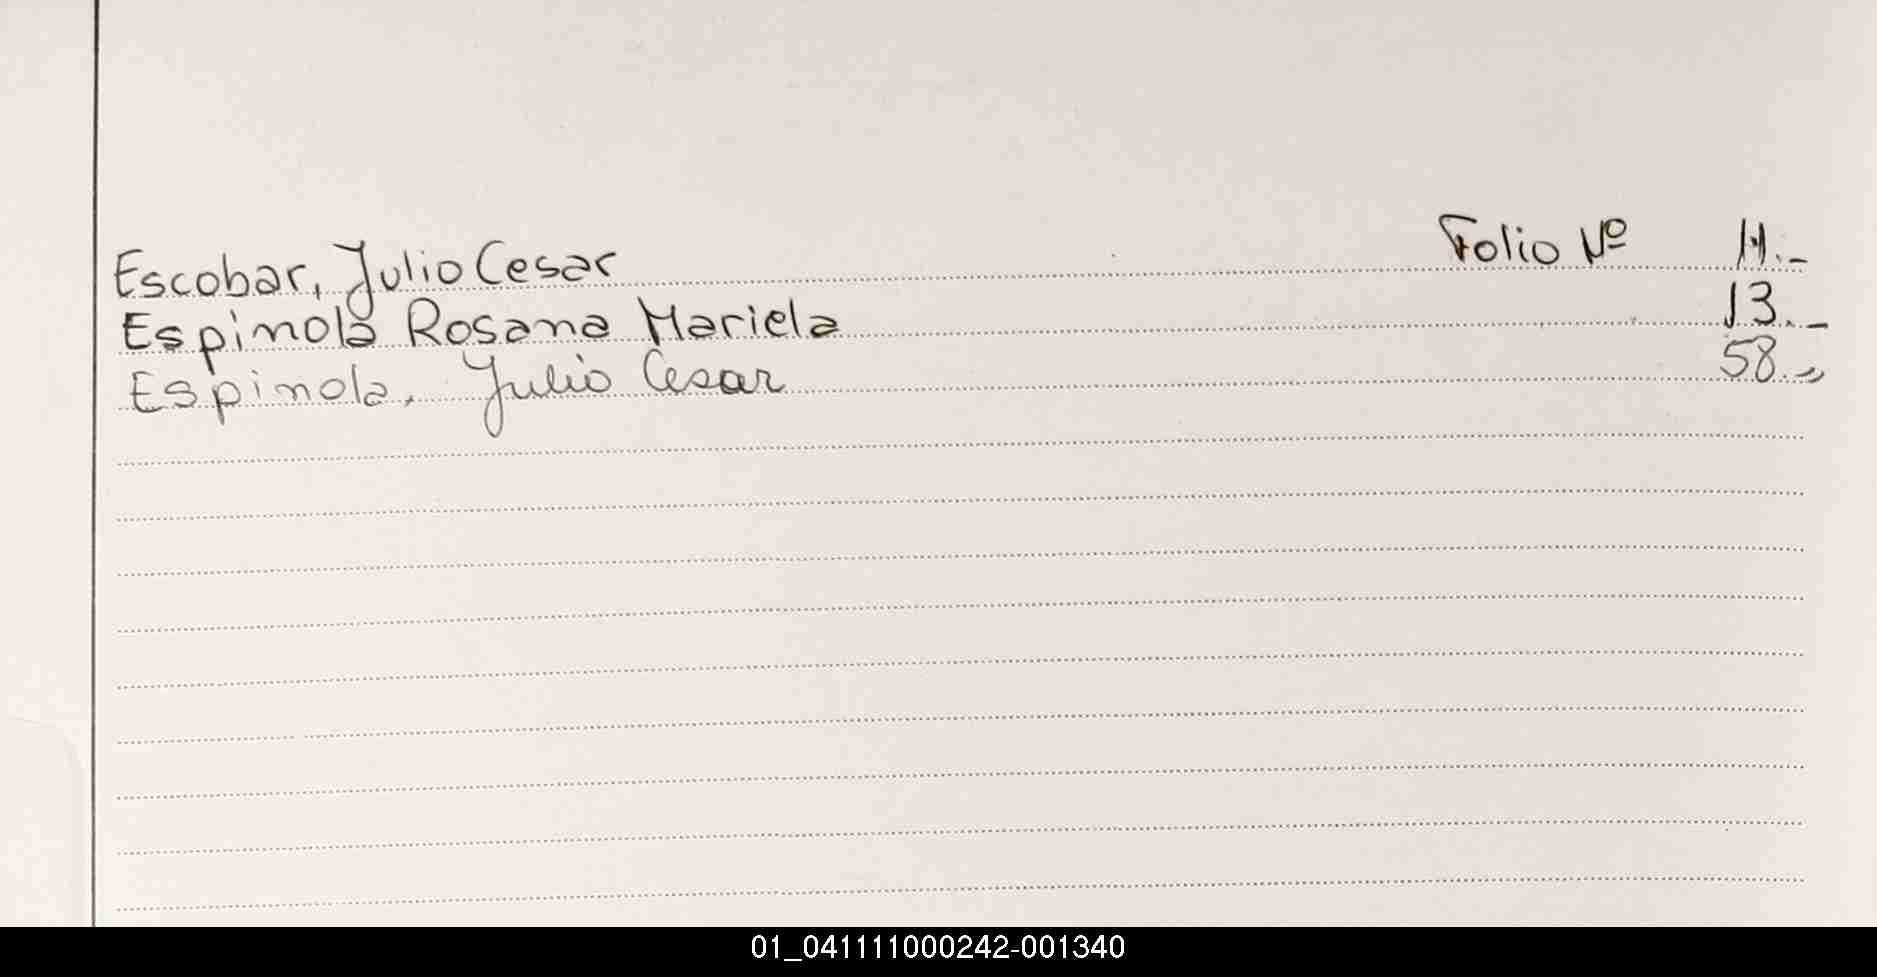 Escobar, Julio Cesar Folio Nº 11.-
Espinola Rosana Mariela 13.-
Espinola, Julio Cesar 58.-
01_041111000242-001340